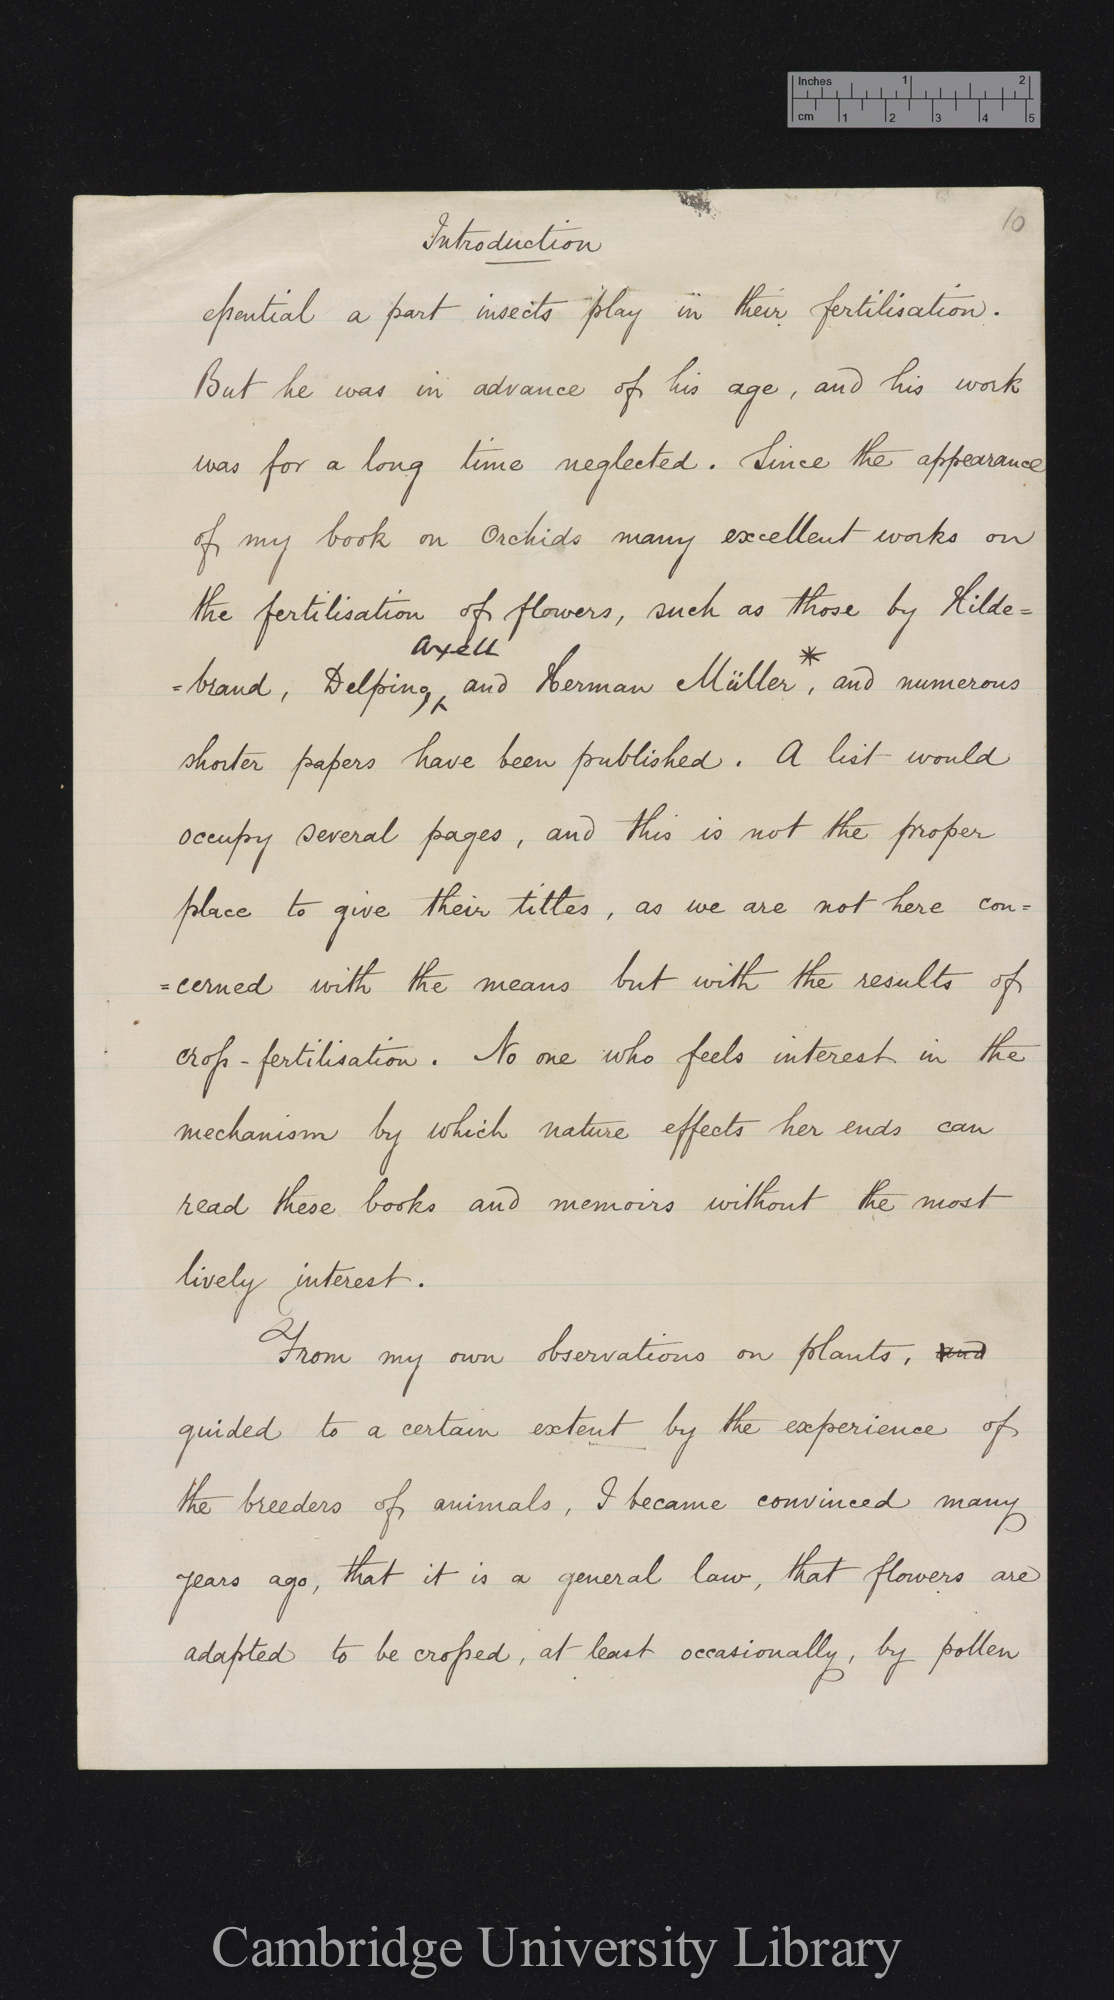 Inches 1 2
cm 1 2 3 4 5
10
Introduction
eſsential a part insects play in their fertilisation.
But he was in advance of his age, and his work
was for a long time neglected. Since the appearance
of my book on Orchids many excellent works on
the fertilisation of flowers, such as those by Hilde=
Axell
=brand, Delpino, and Herman Müller*, and numerous
shorter papers have been published. A list would
occupy several pages, and this is not the proper
place to give their titles, as we are not here con=
=cerned with the means but with the results of
croſs-fertilisation. No one who feels interest in the
mechanism by which nature effects her ends can
read these books and memoirs without the most
lively interest.
From my own observations on plants, and
guided to a certain extent by the experience of
the breeders of animals, I became convinced many
years ago, that it is a general law, that flowers are
adapted to be croſsed, at least occasionally, by pollen
Cambridge University Library